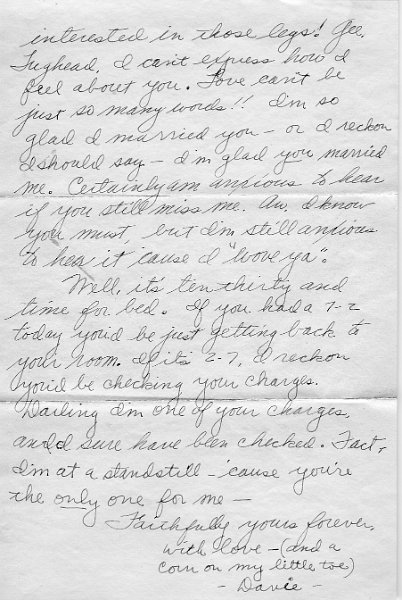 interested in those legs! Gee,
Fughead, I can't express how I
feel about you. Love can't be
just so many words!! I'm so
glad I married you - or I reckon
I should say - I'm glad you married
me. Certainly am anxious to hear
if you still miss me. Aw, I know
you must, but I'm still anxious
to hear it 'cause I "wove ya".
Well, it's ten thirty and
time for bed. If you had a 7-2
today you'd be just getting back to
your room. If it's 2-7, I reckon
you'd be checking your charges.
Darling I'm one of your charges,
and I sure have been checked. Fact,
I'm at a standstill - 'cause you're
the only one for me -
Faithfully yours forever,
with love - (and a
corn on my little toe)
- Davie -